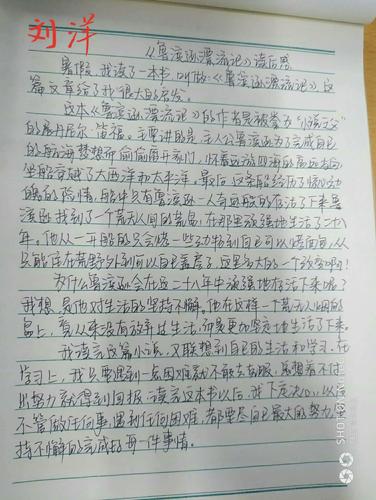 刘洋
《鲁滨逊漂流记》读后感
暑假,我读了一本书,叫做《鲁滨逊漂流记》这
篇文章给了我很大的启发。
这本《鲁滨逊漂流记》的作者是被誉为“小说之父”
的丹尼尔·笛福。主要讲的是,主人公鲁滨逊为了完成自己
的航海梦想而偷偷离开家门,怀着远游四海的高远志向,
坐船穿越了大西洋和太平洋。最后,这条船经历了惊心动
魄的险情,船中只有鲁滨逊一人
滨逊找到了一个荒无人间的荒岛,在那里顽强地生活了二十八
年。他从一开始的只会一些到自己可以,从
只能住在荒野外到可以自己盖房子,这是多大的一个改变啊!
为什么鲁滨逊会在这二十八年中顽强地存活下来呢?
我想,是他对生活的坚持不懈。他在这样一个荒无人烟的
岛上,看从来没有放弃过生活,而是更加坚定地生活了下来。
我读完这篇小说,又联想到自己的生活和学习,在
学习上,我只要遇到一点困难就不,总想着不付
出努力就得到回报,读完这本书以后,我下定决心,以后
不管做任何事,遇到任何困难,都要尽自己最大的努力,坚
持不懈的完成好每一件事情。
SHOT ON